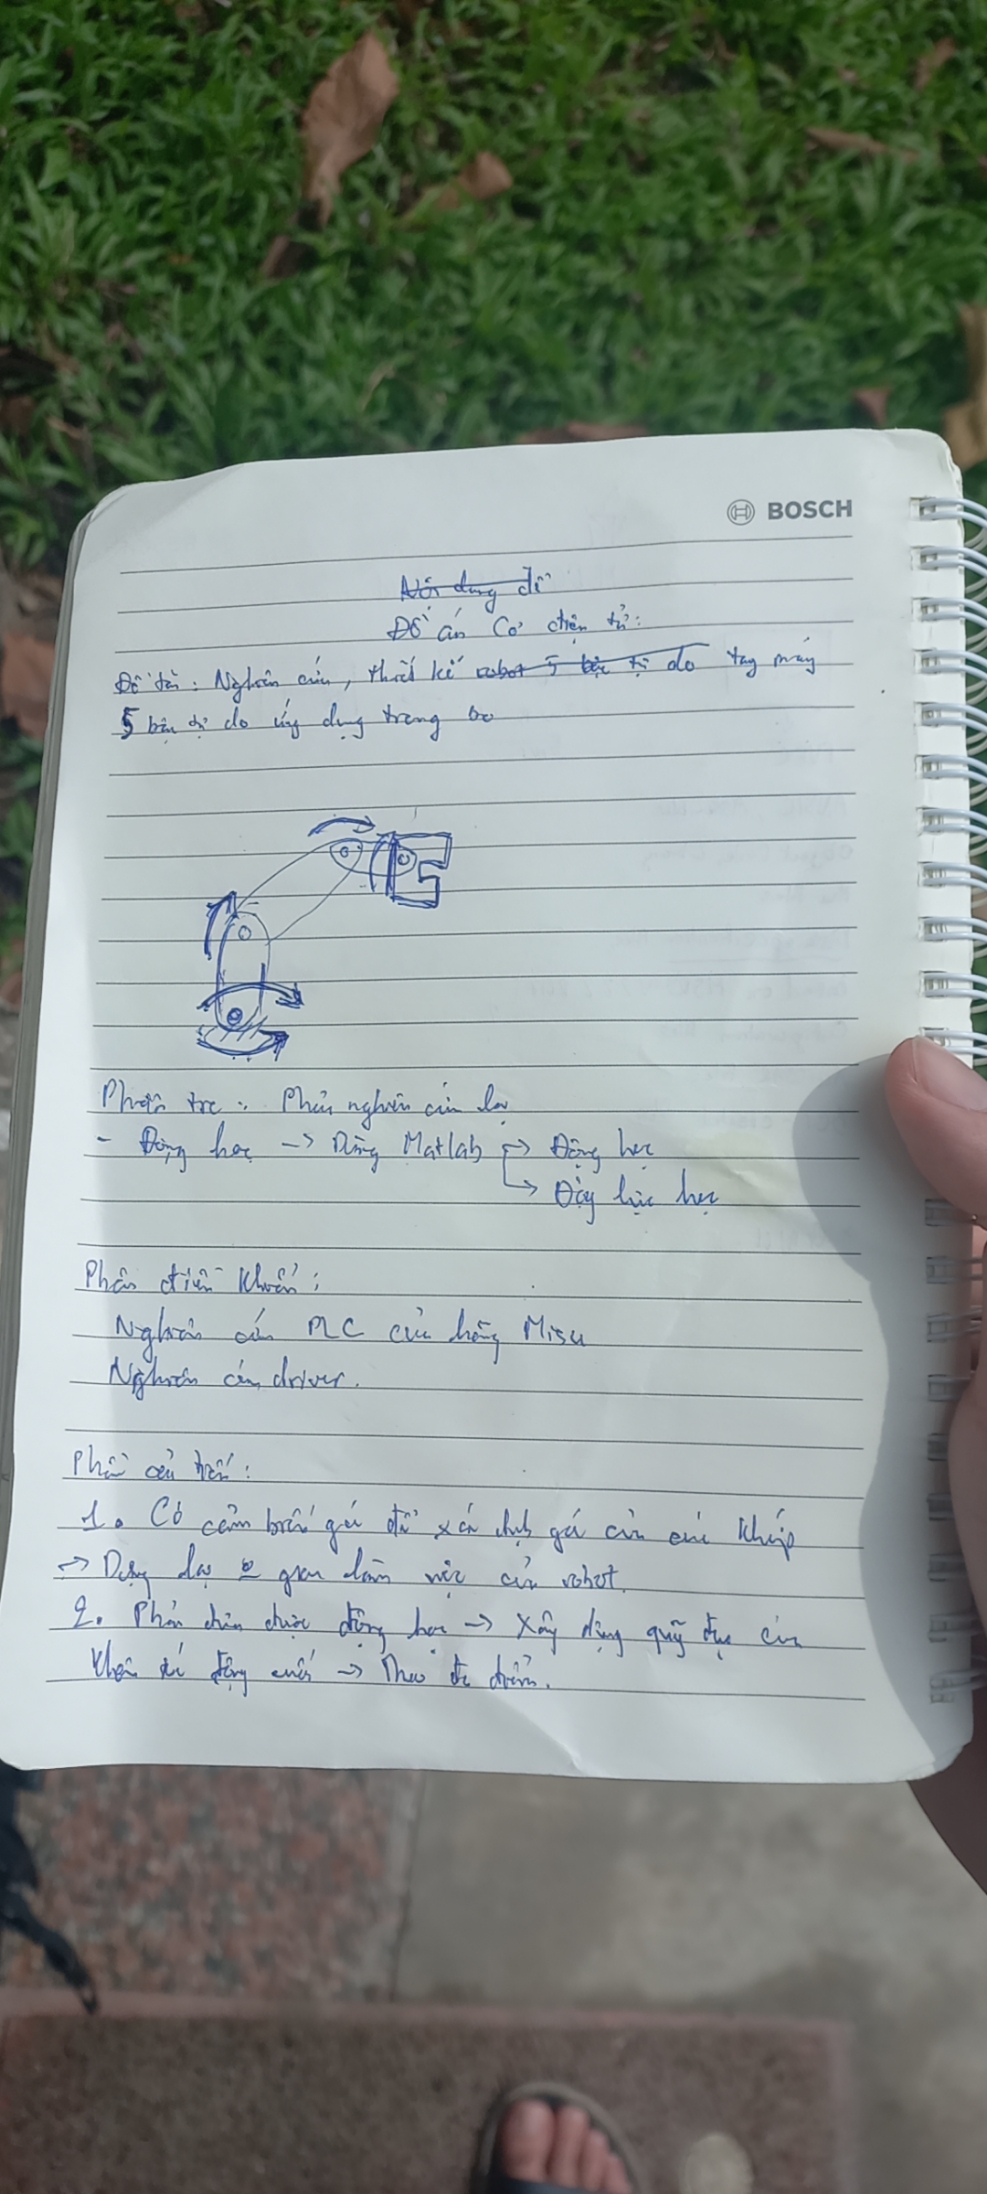 BOSCH
Nội dung đề
Đồ án Cơ điện tử:
Đề tài: Nghiên cứu, thiết kế robot 5 bậc tự do tay máy
5 bậc tự do ứng dụng trong
Phải nghiên cứu lại
- Động học -> Dùng Matlab -> Động học
-> Động lực học
Phần điều khiển:
Nghiên cứu PLC của hãng Misu
Nghiên cứu driver.
Phần :
1. Có cảm biến góc để xác định góc của các khớp
-> Dựng lại không gian làm việc của robot.
2. Phải được động học -> Xây dựng quỹ đạo của
cuối -> Theo điểm.